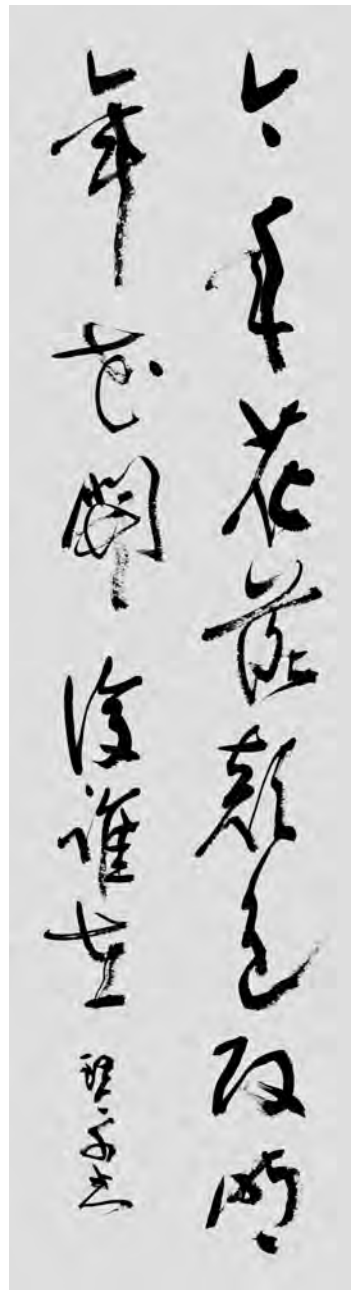 今年花落顔色改明
年花開復誰在